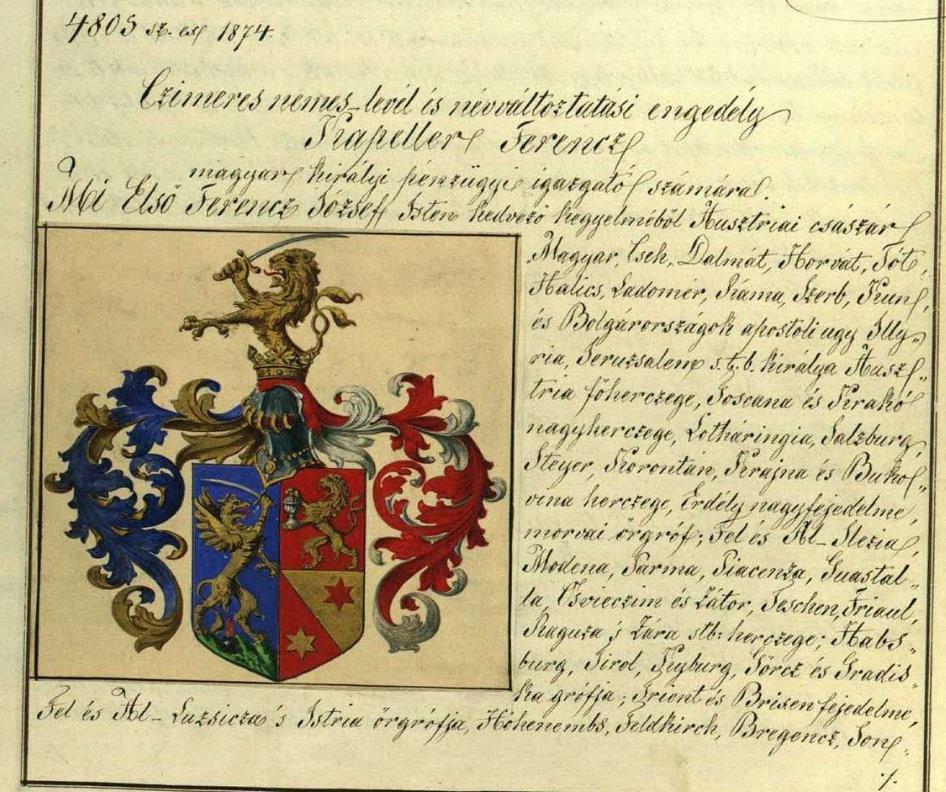 4805 sz. eln 1874.
Czimeres nemes-levél és névváltoztatási engedély
Kapeller Ferencz
magyar királyi pénzügyi igazgató számára.
Mi Első Ferencz József Isten kedvező kegyelméből Ausztriai császár
Magyar, Cseh, Dalmát, Horvát, Tót,
Halics, Ladomér, Ráma, Szerb, Kun,
és Bolgárországok apostoli ugy Illy„
ria, Jeruzsalem s.t.b. királya Ausz„
tria főherczege, Toscana és Krakó
nagyherczege, Lotháringia, Salzburg,
Steyer, Korontán, Krajna és Buko„
vina herczege, Erdély nagyfejedelme,
morvai őrgróf; Fel és Al-Slezia,
Modena, Párma, Piacenza, Guastal„
la, Osvieczim és Zátor, Teschen, Friaul,
Raguza 's Zara stb: herczege; Habs„
burg, Tirol, Kyburg, Görcz és Gradis„
ka grófja; Trient és Brixen fejedelme,
Fel és Al-Luzsicza 's Istria őrgrófja, Hohenembs, Feldkirch, Bregencz, Son„
./.